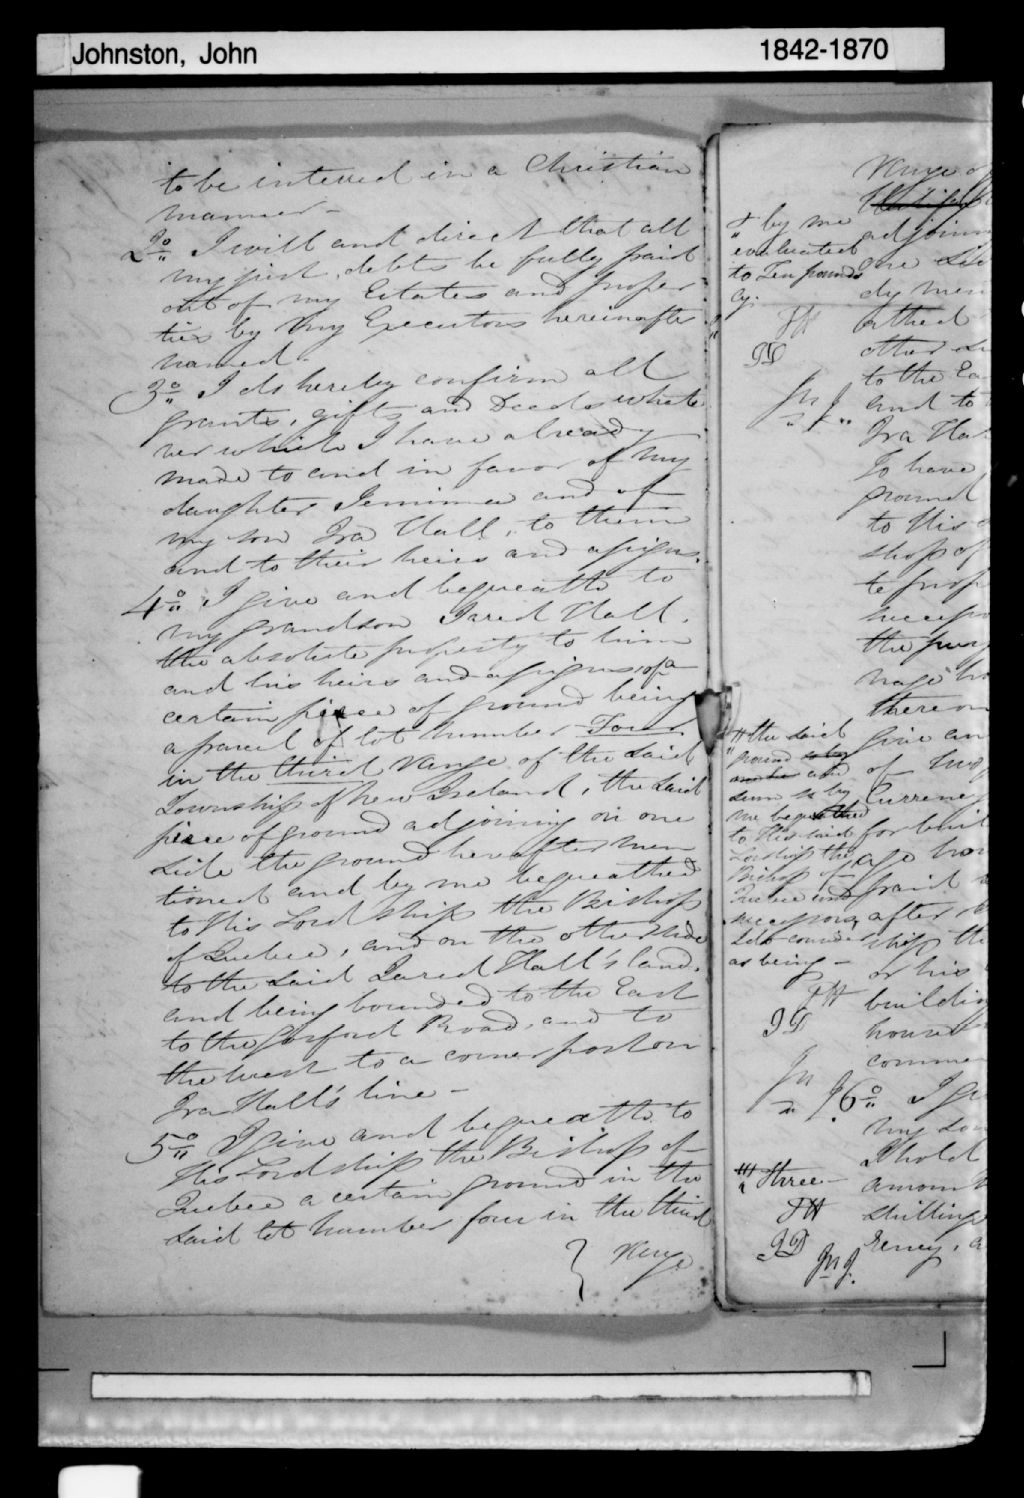 Johnston, John
1842-1870
to be interred in a Christian
manner -
2o I will and direct that all
my just debts be fully paid
out of my Estates and proper
ties by my Executors hereinafter
named -
3o I do hereby confirm all
grants, gifts and Deeds whate
ver which I have already
made to and in favor of my
daughter Jemima and of
my son Ira Hall, to them
and to their heirs and assigns.
4o I give and bequeath to
my grandson Jared Hall,
the absolute property to him
and his heirs and assigns, of a
certain piece of ground being
a parcel of lot number Four
in the third range of the said
Township of New Ireland, the said
piece of ground adjoining on one
side the ground hereafter men
tioned and by me bequeathed
to His Lordship the Bishop
of Quebec, and on the other side
to the said Jared Hall's land,
and being bounded to the East
to the Gosford Road, and to
the west to a corner post on
Ira Hall's line -
5o I give and bequeath to
His Lordship the Bishop of
Quebec a certain ground in the
said lot number four in the third
range
range of
adjoin
one
dy men
other
to the Ea
and to
Ira Hal
To have
ground
to His
shop of
the
thereon
give an
of
Currency
for buil
paid
after
or his
buildin
house
comme
6o I gi
my son
I hold
amount
shillings
rency, a
by me
evaluated
to Ten pounds
cy.
IH
ID
Jn J.
the said
ground
sum
me bequeathed
to His said
Lordship the
Bishop of
Quebec and
successors,
as being -
IH
ID
Jn J.
Three -
IH
ID
Jn J.